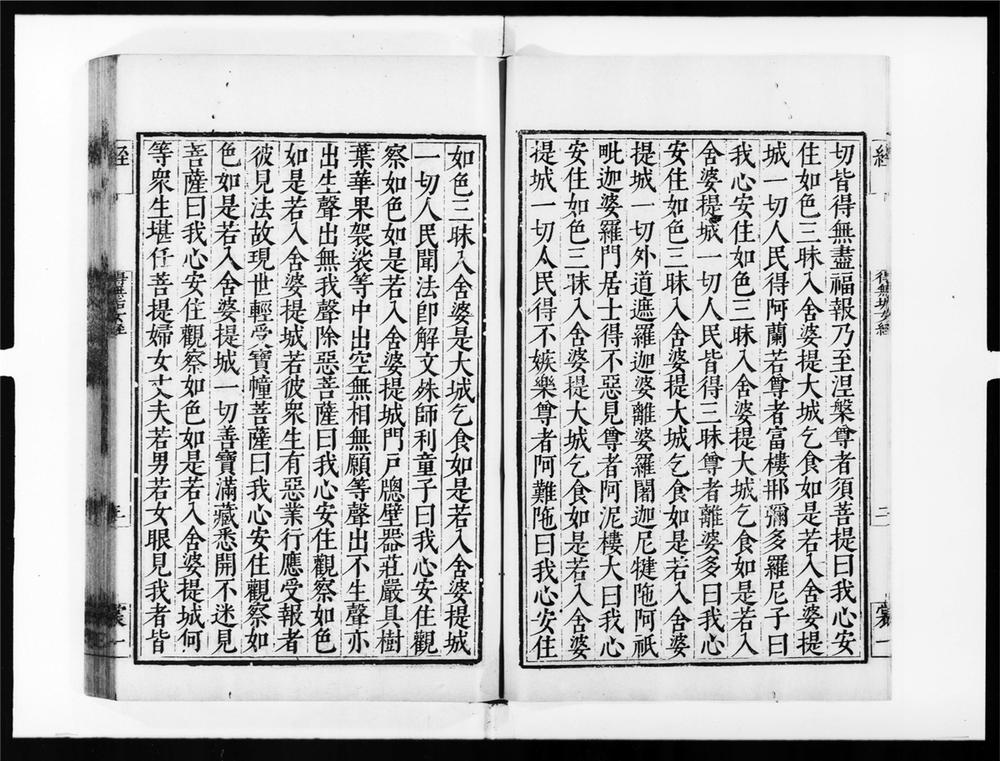 經
得無垢女經
二
裳一
切皆得無盡福報乃至涅槃尊者須菩提曰我心安
住如色三昧入舍婆提大城乞食如是若入舍婆提
城一切人民得阿蘭若尊者富樓那彌多羅尼子曰
我心安住如色三昧入舍婆提大城乞食如是若入
舍婆提城一切人民皆得三昧尊者離婆多曰我心
安住如色三昧入舍婆提大城乞食如是若入舍婆
提城一切外道遮羅迦婆離婆羅闍迦尼犍陁阿祇
毗迦婆羅門居士得不惡見尊者阿泥樓大曰我心
安住如色三昧入舍婆提大城乞食如是若入舍婆
提城一切人民得不嫉樂尊者阿難陁曰我心安住
如色三昧入舍婆是大城乞食如是若入舍婆提城
一切人民聞法即解文殊師利童子曰我心安住觀
察如色如是若入舍婆提城門戸牎壁器莊嚴具樹
葉華果袈裟等中出空無相無願等聲出不生聲亦
出生聲出無我聲除惡菩薩曰我心安住觀察如色
如是若入舍婆提城若彼衆生有惡業行應受報者
彼見法故現世輕受寶幢菩薩曰我心安住觀察如
色如是若入舍婆提城一切善寶滿藏悉開不迷見
菩薩曰我心安住觀察如色如是若入舍婆提城何
等衆生堪任菩提婦女丈夫若男若女眼見我者皆
經
得無垢女經
三
裳一